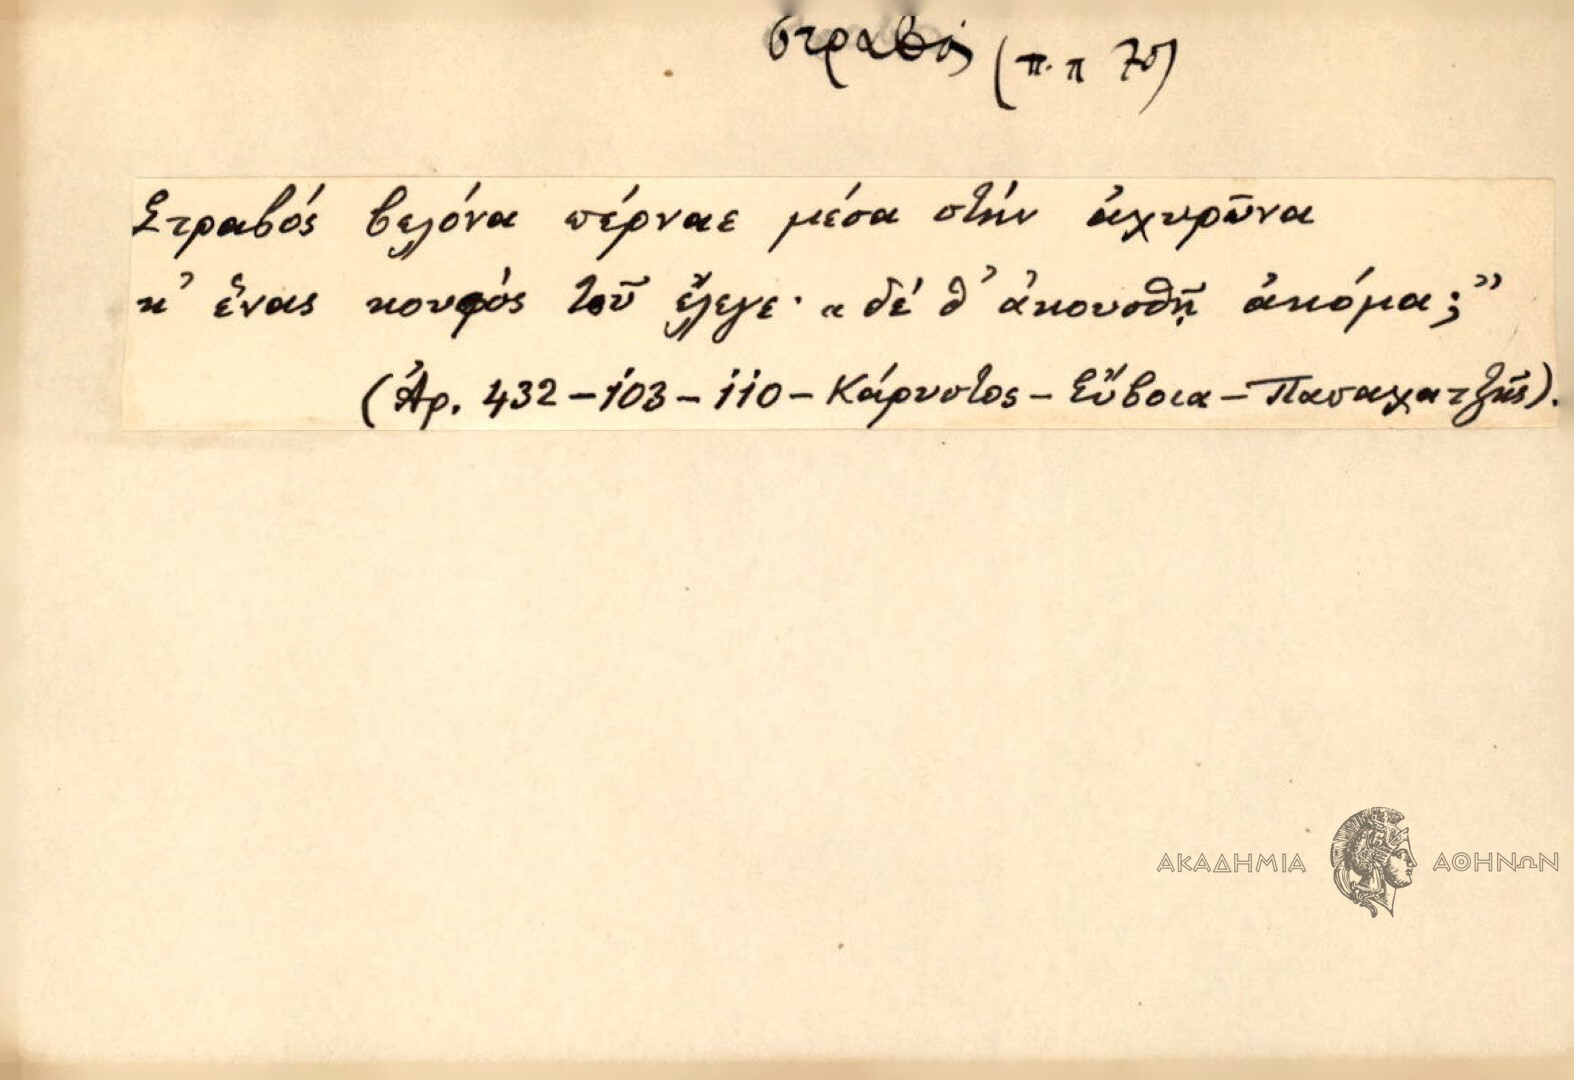 στραβός (π.π 70)
Στραβός βελόνα πέρναε μέσα στήν ἀχυρῶνα
κ' ἕνας κουφός τοῦ ἔλεγε· "δέ θ' ἀκουσθῇ ἀκόμα;"
(Ἀρ. 432 - 103 - 110 - Κάρυστος - Εὔβοια - Παπαχατζῆς).
ΑΚΑΔΗΜΙΑ ΑΘΗΝΩΝ